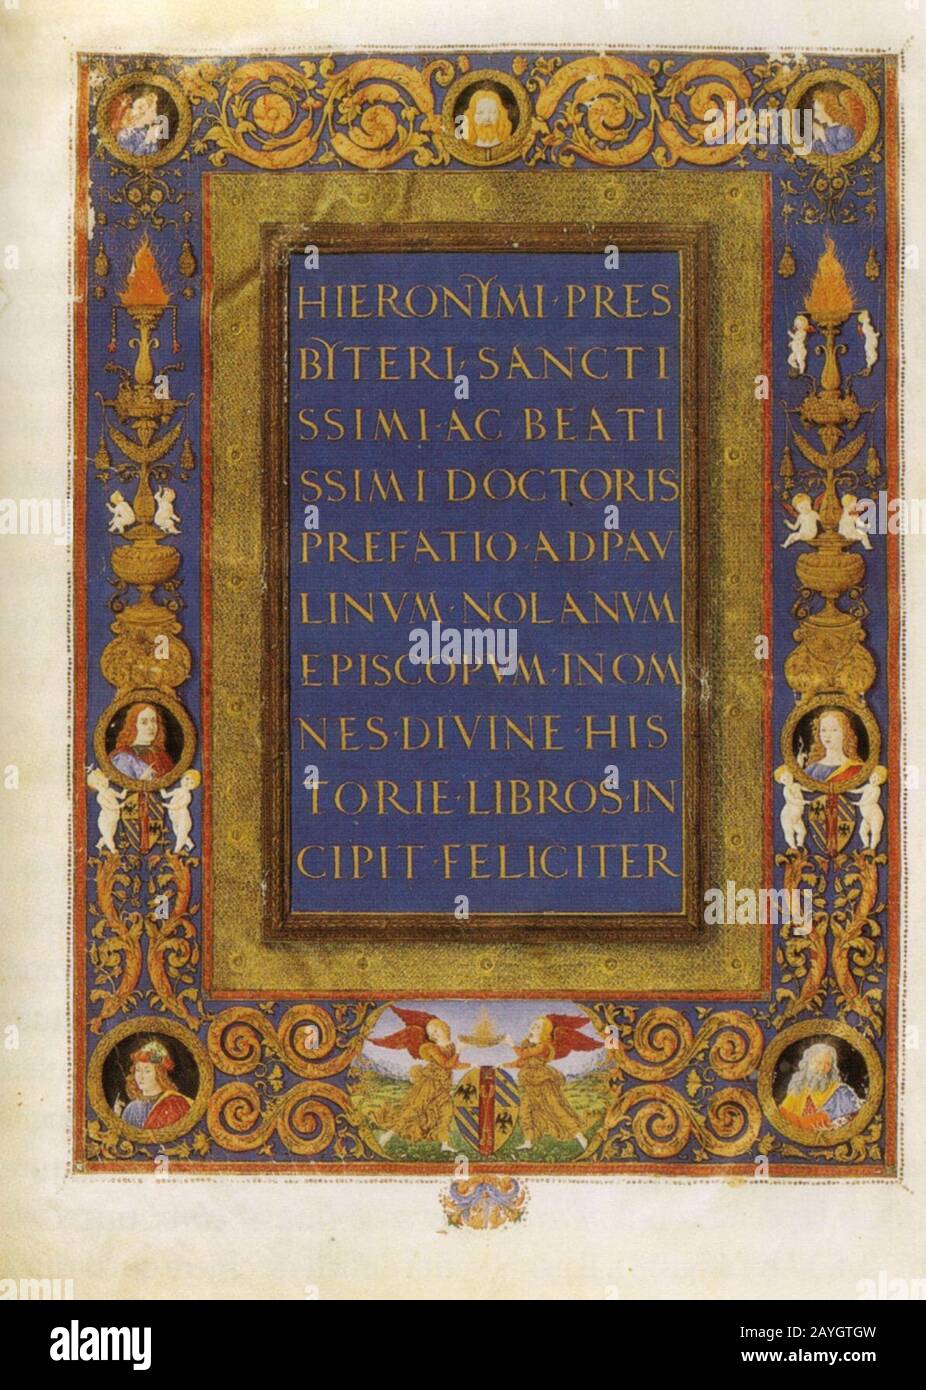 HIERONYMI·PRES
BYTERI·SANCTI
SSIMI·AC BEATI
SSIMI DOCTORIS
PREFATIO·AD PAV
LINVM·NOLANVM
EPISCOPVM·IN OM
NES·DIVINE·HIS
TORIE·LIBROS·IN
CIPIT·FELICITER
alamy
alamy
Image ID: 2AYGTGW
www.alamy.com